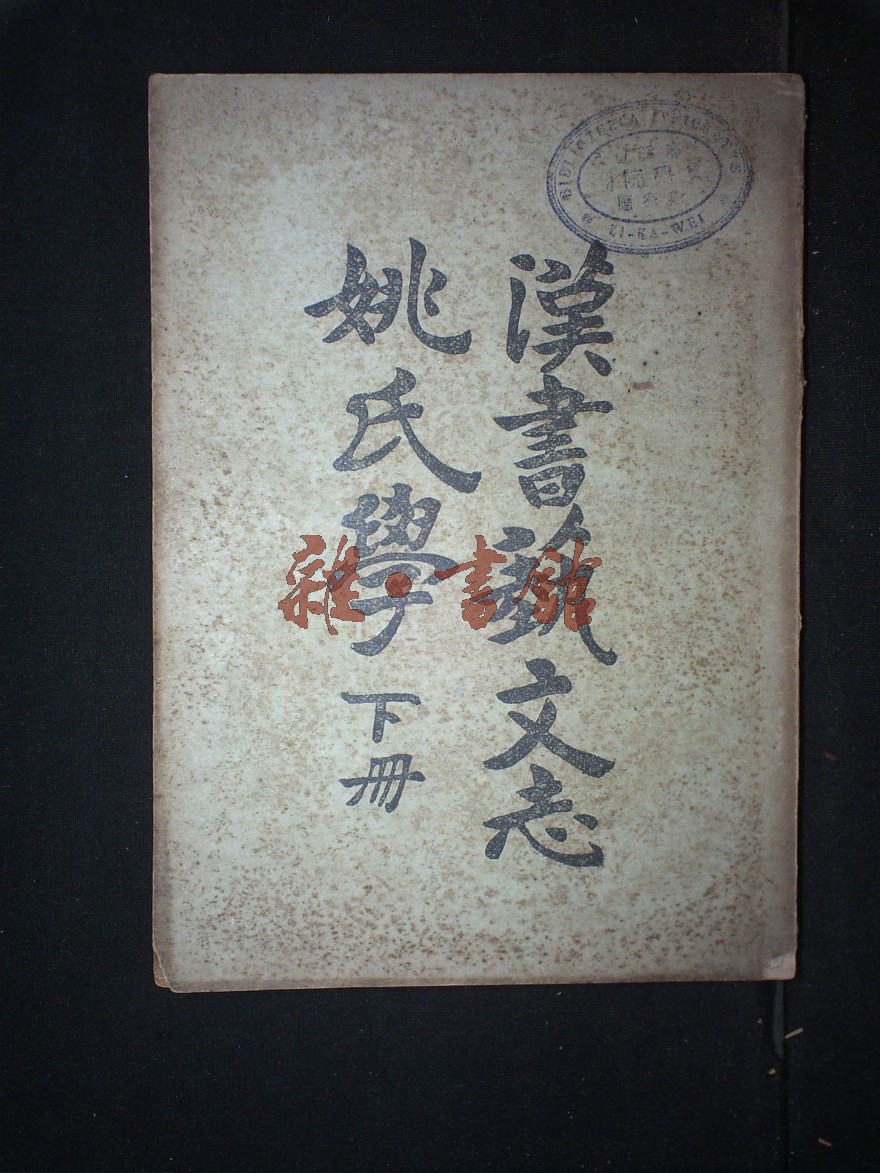 漢書藝文志
姚氏學 下冊
雜·書館
BIBLIOTHECA
ZI-KA-WEI